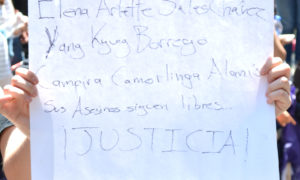 Elena Arlette Sales Chávez
Yang Kyung Borrego
Campira Camorlinga Alanis
Sus Asesinos siguen libres...
¡JUSTICIA!